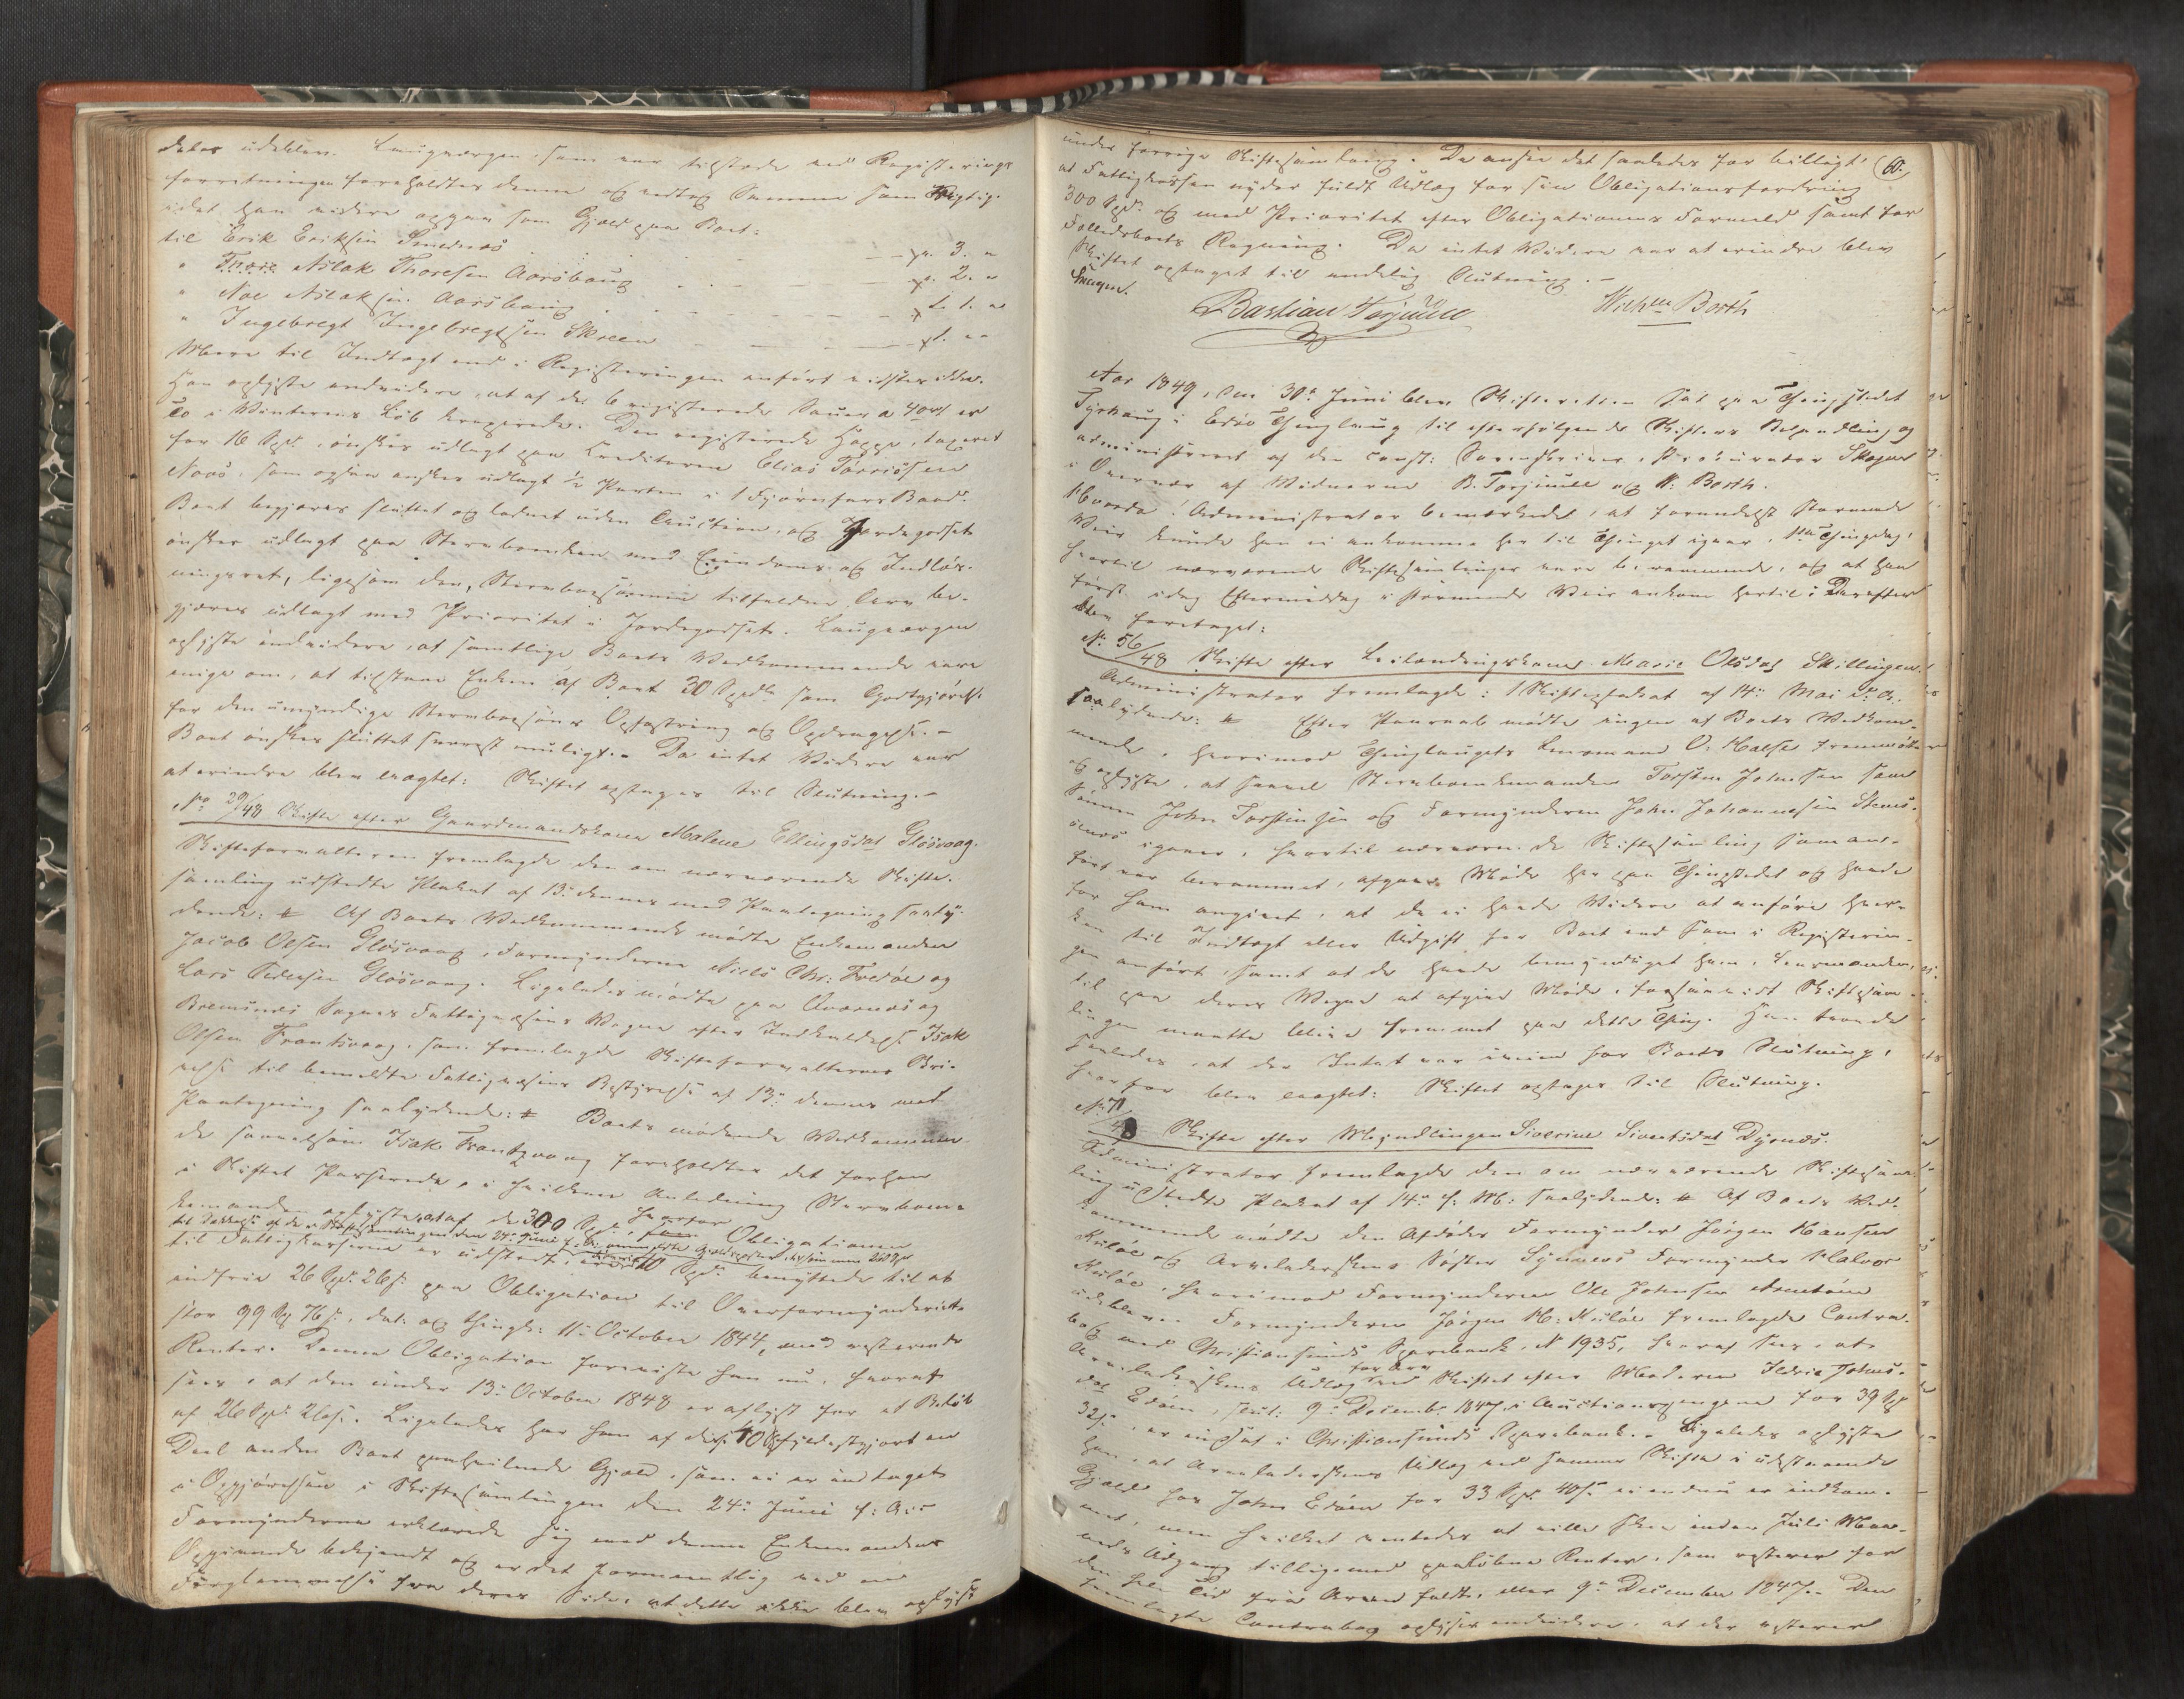 udebleven. Laugværgen, som var tilstede ved Registerings
forretningen foreholdtes denne og vedtog Samme som Rigtig.
idet han videre opgav som Gjæld paa Boet:
til Erik Eriksen Smednæs - - 3. "
" Aslak Thoresen Aarsboug - - 2. "
" Noe Aslaksen Aarsboug - - 1. "
" Ingebregt Ingebregtsen Skreen - -
Mere til Indtægt end i Registeringen anført vidstes ikke.
Han oplyste endvidere, at af de 6 registerede Sauer a 40 er
to i Vinterens Løb kreperede. Den registerede Hoppe, taxeret
for 16 Spd., ønskes udlagt paa Creditoren Elias Tørrissen
Noos, som ogsaa ønskes udlagt ½ Parten i 1 Fjørnfars Baad.
Boet begjæres sluttet og ladnet uden Auction, og Jordegodset
ønskes udlagt paa Stervboenken med Eiendoms og Indløs-
ningsret, ligesom den Stervboesønnen tilfaldne Arv be-
gjæres udlagt med Prioritet i Jordegodset. Laugværgen
oplyste endvidere, at samtlige Boets Vedkommende vare
enige om, at tilstaae Enken af Boet 30 Spdlr som Godtgjørelse
for den umyndige Stervboesøns Opfostring og Opdragelse. -
Boet ønskes sluttet snarest muligt. - Da intet Videre var
at erindre blev eragtet: Skiftet optages til Slutning. -
No 29/48 Skifte efter Gaardmandskone Malene Ellingsdat Gløsvaag.
Skifteforvalteren fremlagde den om nærværende Skifte-
samling udstedte Plakat af 13de dennes med Paategning saaly-
dende: # Af Boets Vedkommende mødte Enkemanden
Jacob Olsen Gløsvaag, Formynderne Niels Chr: Fredøe og
Lars Pedersen Gløsvaag. Ligeledes mødte paa Qvernæs og
Bremsnæs Sognes Fattigvæsens Vegne efter Indkaldelse Isak
Olsen Frantzvaag, som fremlagde Skifteforvalterens Skri-
velse til bemeldte Fattigvæsens Bestyrelse af 13de dennes med
Paategning saalydende: # Boets mødende Vedkommen-
de saavelsom Isak Frantzvaag foreholdtes det forhen
i Skiftet Passerede, i hvilken Anledning Stervboen-
kemanden oplyste, at af de 300 Spd., hvorfor Obligationen
til Fattigkassen er udstedt, 40 Spd. benyttede til at
indfrie 26 Spd. 26 s. paa Obligation til Overformynderiet
stor 99 Spd 76 s., dat. og thingl: 11te October 1844, med resterende
Renter. Denne Obligation foreviste han nu, hvoraf
sees, at den under 13de October 1848 er aflyst for et Beløb
af 26 Spd. 26 s. Ligeledes har han af disse 40 fyldestgjort en
Deel anden Boet paahvilende Gjæld, som ei er indtaget
i Opgjørelsen i Skiftesamlingen den 24de Juni f: A:
Formynderne erklærede sig med denne Enkemandens
Opgivende bekjendt og er det formeentlig ved en
Forglemmelse fra deres Side, at dette ikke blev oplyst
under forrige Skiftesamling. De ansee det saaledes for billigt, 60.
at Fattigkassen nyder fuldt Udlæg for sin Obligationsfordring
300 Spd. og med Prioritet efter Obligationens Formeld samt for
Fælledsboets Regning. Da intet Videre var at erindre blev
Skiftet optaget til endelig Slutning. -
Skagen. Bastian Torjulle Wilhlm Borth
Aar 1849, den 30te Juni blev Skifteretten sat paa Thingstedet
Tyrhaug i Edøe Thinglaug til efterfølgende Skifters Behandling og
administreret af den const: Sorenskriver, Procurator Skagen
i Overvær af Vidnerne B. Torjulle og W: Borth.
Hvorda: Administrator bemærkede, at formedelst stormende
Veir kunde han ei ankomme her til Thinget igaar, 1ste Thingdag,
hvortil nærværende Skiftesamlinger vare berammede, og at han
først idag Eftermiddag i stormende Veir ankom hertil: Derefter
blev foretaget:
No 56/48 Skifte efter Leilændingskone Marie Olsdat Skillingen.
Administrator fremlagde: 1 Skifteplakat af 14de Mai d. A.
saalydende: # Efter Paaraab mødte ingen af Boets Vedkom-
mende, hvorimod Thinglaugets Lensmand O: Halse fremmødte
og oplyste, at saavel Stervboenkemanden Torsten Johnsen som
Sønnen John Torstensen og Formynderen John Johannesen Steens-
øens igaar, hvortil nærværende Skiftesamling som an-
ført var berammet, afgave Møde her paa Thingstedet og havde
for ham angivet, at de ei havde Videre at anføre hver-
ken til Indtægt eller Udgift for Boet end som i Registerin-
gen anført, samt at de havde bemyndiget ham, Lensmanden,
til paa deres Vegne at afgive Møde, forsaavidt Skiftesam-
lingen maatte blive fremmet paa dette Thing. Han troede
saaledes, at der Intet var iveien for Boets Slutning,
hvorfor blev eragtet: Skiftet optages til Slutning.
No 71/48 Skifte efter Myndlingen Siverine Sivertsdat Dyrnæs.
Administrator fremlagde den om nærværende Skiftesam-
ling udstedte Plakat af 14de f: M: saalydende: # Af Boets Ved-
kommende mødte den Afdødes Formynder Jörgen Hansen
Kuløe og Arveladerskens Søster Synnevs Formynder Halvor
Kuløe, hvorimod Formynderen Ole Johnsen Arentøen
udeblev. Formynderen Jörgen H: Kuløe fremlagde Contra-
bog med Christiansunds Sparebank, No 1935, hvoraf sees, at
Arveladerskens Udlæg for Arv ved Skiftet efter Moderen Sedvie Johns-
dat Edøen, slut: 9de Decembr 1847, i Auctionspengene for 39 Spd
32 s., er indsat i Christiansunds Sparebank. - Ligeledes oplyste
han, at Arveladerskens Udlæg ved samme Skifte i udstaaende
Gjæld hos John Edøen for 33 Spd. 40 s. ei endnu er indkom-
met, men hvilket ventedes at ville skee inden Juli Maa-
neds Udgang tilligemed paaløbne Renter, som resterer for
den hele Tid fra Arven faldt, eller 9de December 1847. Den
fremlagte Contrabog oplyser endvidere, at der resterer